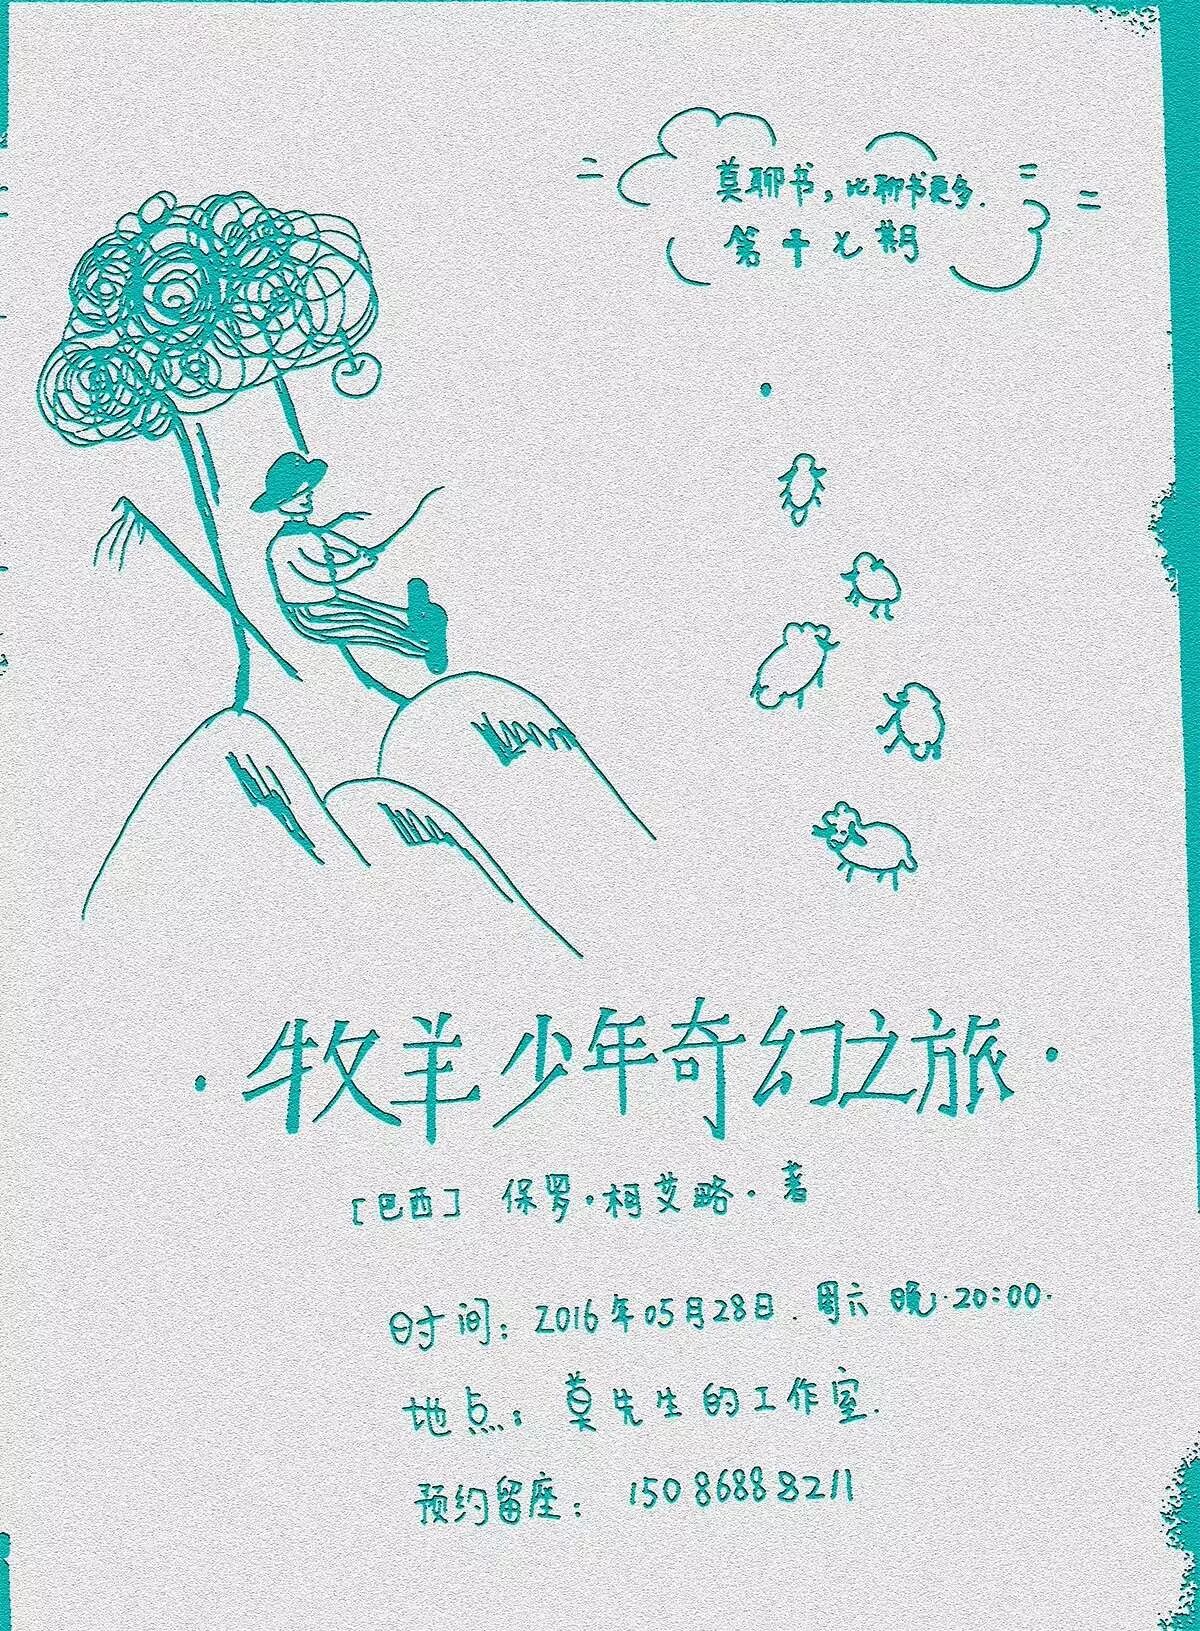 莫聊书，比聊书更多．
第十七期
·牧羊少年奇幻之旅·
［巴西］ 保罗·柯艾略·著
时间：2016年05月28日．周六晚·20:00·
地点：莫先生的工作室．
预约留座：15086888211